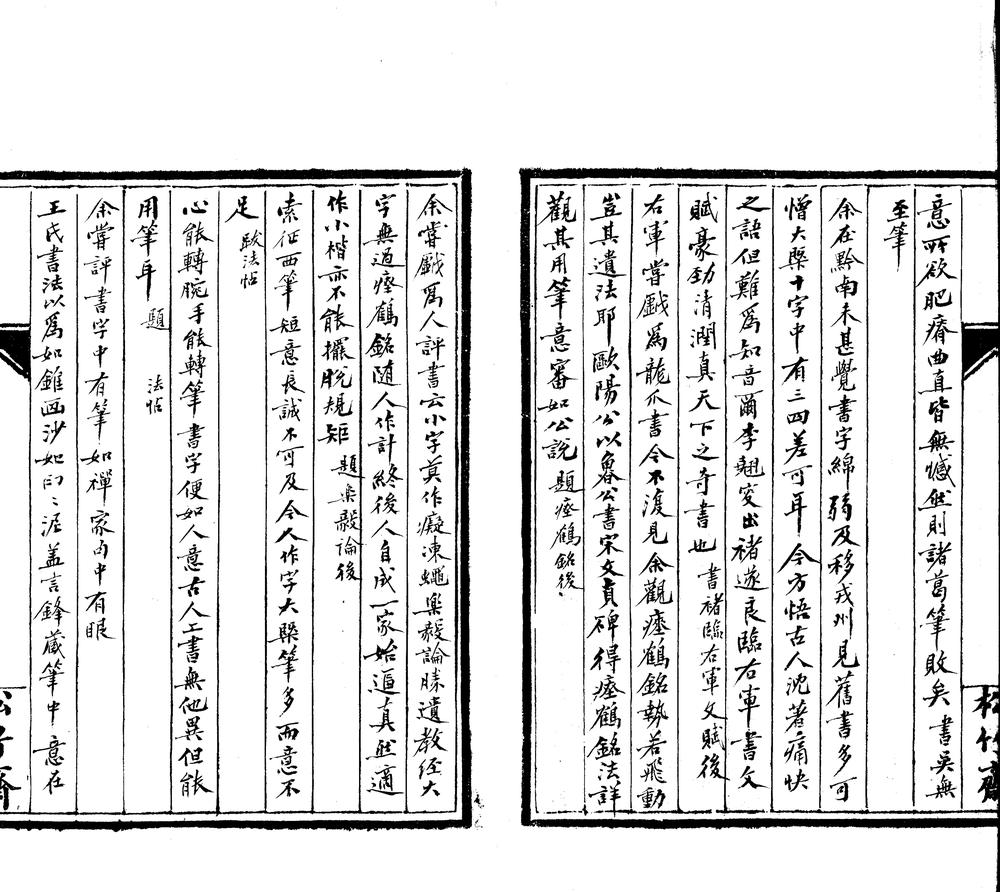 松竹齋
意所欲肥瘠曲直皆無憾然則諸葛筆敗矣 書吳無
至筆
余在黔南未甚覺書字綿弱及移戎州見舊書多可
憎大槩十字中有三四差可耳今方悟古人沈著痛快
之語但難爲知音爾李翹叟出褚遂良臨右軍書文
賦豪勁清潤真天下之奇書也 書褚臨右軍文賦後
右軍嘗戲爲龍爪書今不復見余觀瘞鶴銘執若飛動
豈其遺法耶歐陽公以魯公書宋文貞碑得瘞鶴銘法詳
觀其用筆意審如公說 題瘞鶴銘後
余嘗戲爲人評書云小字莫作癡凍蠅樂毅論勝遺教經大
字無過瘞鶴銘隨人作計終後人自成一家始逼真然適
作小楷亦不能擺脫規矩 題樂毅論後
索征西筆短意長誠不可及今人作字大槩筆多而意不
足 跋法帖
心能轉腕手能轉筆書字便如人意古人工書無他異但能
用筆耳 題 法帖
余嘗評書字中有筆如禪家句中有眼
王氏書法以爲如錐画沙如印印泥盖言鋒藏筆中意在
松竹齋